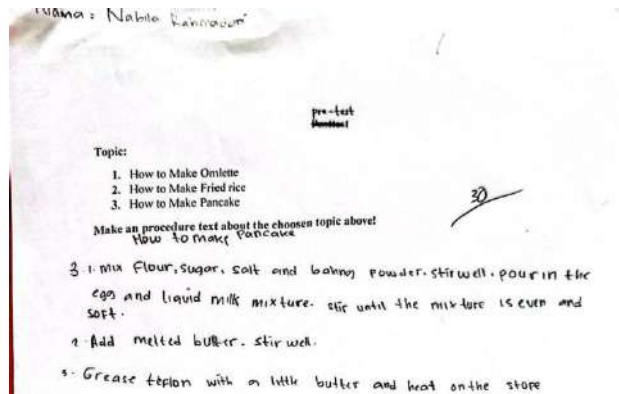 Nama : Nabila Rahmadani
pre-test
Topic:
1. How to Make Omlette
2. How to Make Fried rice
3. How to Make Pancake
30
Make an procedure text about the choosen topic above!
How to make Pancake
3 1. mix Flour, sugar, salt and baking powder. stir well. pour in the
eggs and liquid milk mixture. stir until the mixture is even and
soft.
2. Add melted butter. stir well.
3. Grease teflon with a little butter and heat on the stope